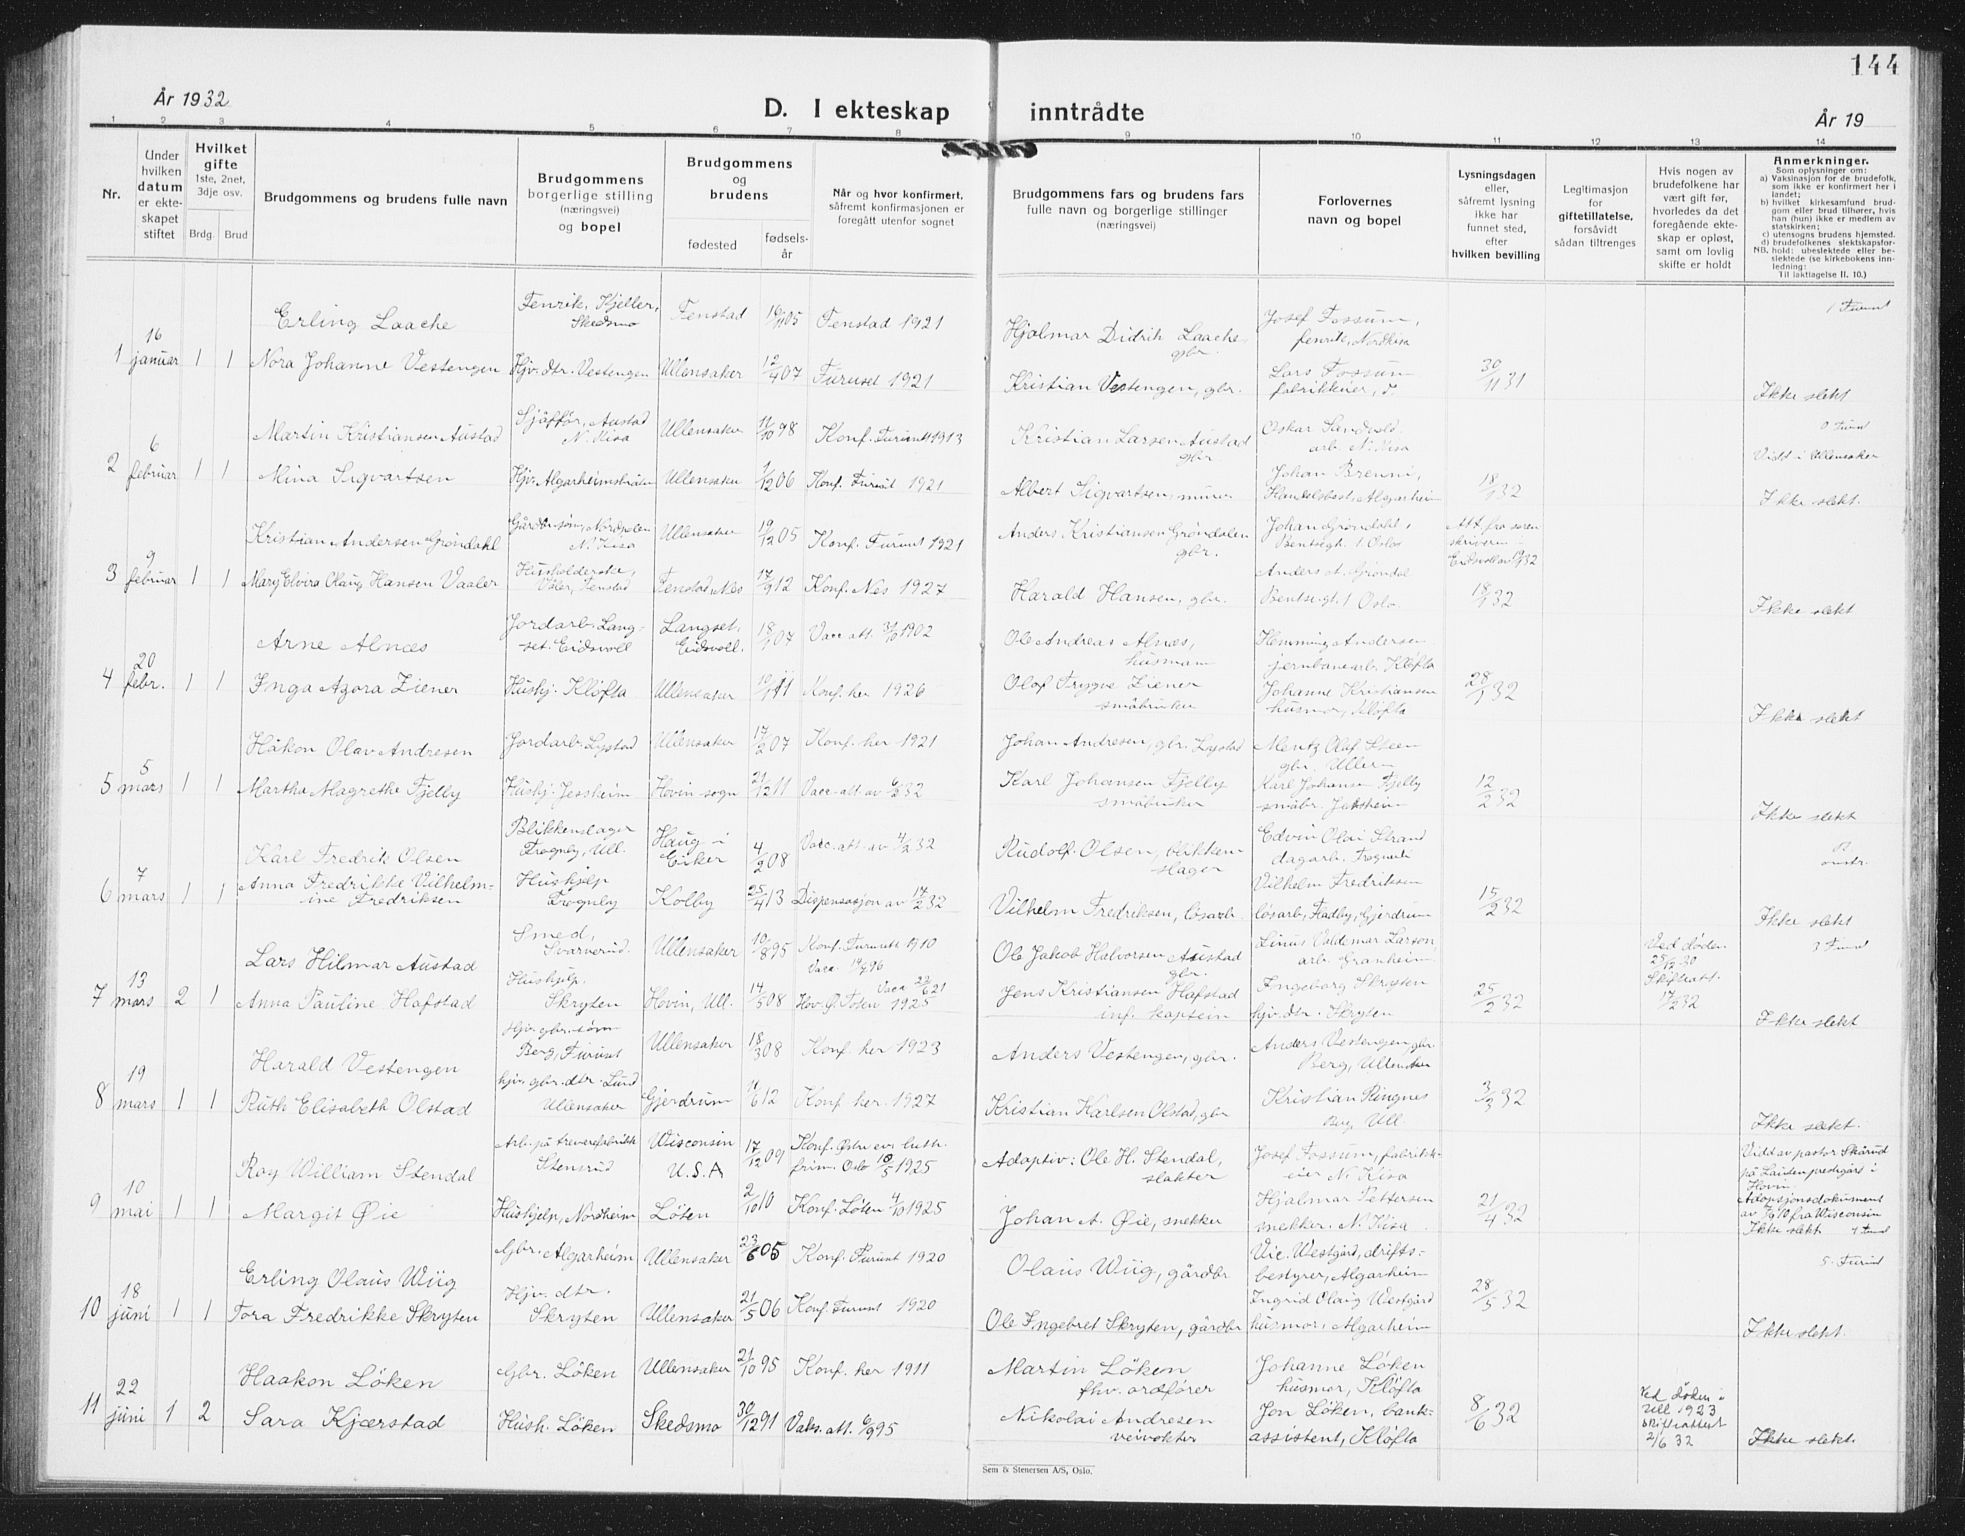 144
År 1932
D. I ekteskap inntrådte
År 19
1 2 3 4 5 6 7 8 9 10 11 12 13 14
Nr.
Under hvilken datum er ekteskapet stiftet
Hvilket gifte
1ste, 2net, 3dje osv.
Brdg. Brud
Brudgommens og brudens fulle navn
Brudgommens borgerlige stilling (næringsvei) og bopel
Brudgommens og brudens
fødested
fødselsår
Når og hvor konfirmert, såfremt konfirmasjonen er foregått utenfor sognet
Brudgommens fars og brudens fars fulle navn og borgerlige stillinger (næringsvei)
Forlovernes navn og bopel
Lysningsdagen eller, såfremt lysning ikke har funnet sted, efter hvilken bevilling
Legitimasjon for giftetillatelse, forsåvidt sådan tiltrenges
Hvis nogen av brudefolkene har vært gift før, hvorledes da det foregående ekteskap er opløst, samt om lovlig skifte er holdt
Anmerkninger.
Som oplysninger om:
a) Vaksinasjon for de brudefolk, som ikke er konfirmert her i landet;
b) hvilket kirkesamfund brudgom eller brud tilhører, hvis han (hun) ikke er medlem av statskirken;
c) utensogns brudens hjemsted.
d) brudefolkenes slektskapsforhold: ubeslektede eller beslektede (se kirkebokens innledning:
NB.
Til iakttagelse II. 10.)
1 16 januar 1 1
Erling Laache
Fenrik, Kjeller, Skedsmo
Fenstad
05
Fenstad 1921
Hjalmar Didrik Laache, gbr.
Josef Fossum, fenrik, Nordkisa
Nora Johanne Vestengen
Hjv. dtr. Vestengen
Ullensaker
12/4 07
Furuset 1921
Kristian Vestengen, gbr.
Lars Fossum fabrikkeier,
30/11 31
Ikke slekt
2 6 februar 1 1
Martin Kristiansen Austad
Sjåffør, Austad N. Kisa
Ullensaker
11/10 98
Konf. Furuset 1913
Kristian Larsen Austad gbr.
Oskar Sandvold arb. N. Kisa
Viet i Ullensaker
Mina Sigvartsen
Ullensaker
1/12 06
Konf. Furuset 1921
Albert Sigvartsen, murer
Johan Brenni, Handelsbest. Algarheim
18/1 32
Ikke slekt.
3 9 februar 1 1
Kristian Andersen Grøndahl
Gårdbr.søn, Nordpolen N. Kisa
Ullensaker
19/12 05
Konf. Furuset 1921
Anders Kristiansen Grøndalen gbr.
Johan Grøndahl, Bentsegt. 1 Oslo
Att. fra sorenskriveren i Eidsvoll
Mary Elvira Olaug Hansen Vaaler
Husholderske, Fenstad
Fenstad, Nes
17/9 12
Konf. Nes 1927
Harald Hansen, gbr.
Anders A. Grøndal Bentsegt. 1 Oslo.
18/1 32
Ikke slekt
4 20 febr. 1 1
Arne Alnæs
Jordarb. Langset. Eidsvoll
Langset, Eidsvoll.
07
Vacc. att. 1902
Ole Andreas Alnæs, husmann
Hemming Andersen jernbanearb. Kløfta
Inga Azora Ziener
Hushj. Kløfta
Ullensaker
11
Konf. her 1926
Olaf Trygve Ziener småbruker
Johanne Kristiansen husmor, Kløfta
28/1 32
Ikke slekt
5 5 mars 1 1
Håkon Olav Andresen
Jordarb. Lystad
Ullensaker
17/2 07
Konf. her 1921
Johan Andresen, gbr. Lystad
Mentz Olaf Steen gbr. Ullern
Martha Magrethe Fjelby
Hushj. Jessheim
Hovin sogn
21/12 11
Vacc. att. av 6/2 32
Karl Johansen Fjelby småbruker
Karl Johansen Fjelby småbr. Jessheim
12/2 32
Ikke slekt
6 7 mars 1 1
Karl Fredrik Olsen
Blikkenslager Trogneby, Ull.
Haug i Eiker
4/2 08
Vacc. att. av 4/2 32
Rudolf Olsen, blikkenslager
Edvin Olai Strand dagarb.
Anna Fredrikke Vilhelmine Fredriksen
Hushjelp Trogneby
Kolby
25/4 13
Dispensasjon av 17/2 32
Vilhelm Fredriksen, løsarb.
Vilhelm Fredriksen løsarb, Fladby, Gjerdrum
15/2 32
Ikke slekt
7 13 mars 2 1
Lars Hilmar Austad
Smed, Svarverud.
Ullensaker
10/8 95
Konf. Furuset 1910
Ole Jakob Halvorsen Austad gbr.
Linus Valdemar Larson arb. Granheim
Ved døden 25/12 30 Skifteatt. 17/2 32
Anna Pauline Hafstad
Hushjelp. Skryten
Hovin, Ull.
14/5 08
Hov. Ø. Toten 1925
Jens Kristiansen Hafstad inf. kaptein
Ingeborg Skryten hjv. dtr. Skryten
25/2 32
Ikke slekt
8 19 mars 1 1
Harald Vestengen
Hjv. gbr. sønn Berg, Furuset
Ullensaker
18/3 08
Konf. her 1923
Anders Vestengen, gbr.
Anders Vestengen, gbr. Berg, Ullensaker
Ruth Elisabeth Olstad
hjv. gbr. dtr. Lund Ullensaker
Gjerdrum
11/6 12
Konf. her 1927
Kristian Karlsen Olstad, gbr
Kristian Ringnes Berg, Ull.
3/3 32
Ikke slekt.
9 10 mai 1 1
Roy William Stendal
Arb. på trevarefabrikk Stensrud
Wisconsin U.S.A
17/12 09
Konf. Østre ev. luth. frim. Oslo 10/5 1925
Adoptiv: Ole H. Stendal, slakter
Josef Fossum, fabrikkeier N. Kisa
Margit Øie
Hushjelp, Nordheim
Løten
2/10 10
Konf. Løten 4/10 1925
Johan A. Øie, snekker
Hjalmar Pettersen snekker. N. Kisa
21/4 32
Viet av pastor Skårud på Lauten prestegård i Hovin.
Adopsjonsdokument av fra Wisconsin
Ikke slekt
10 18 juni 1 1
Erling Olaus Wiig
Gbr. Algarheim
Ullensaker
23/6 05
Konf. Furuset 1920
Olaus Wiig, gårdbr
Vic. Westgård, driftsbestyrer, Algarheim
Tora Fredrikke Skryten
Hjv. dtr. Skryten
Ullensaker
21/5 06
Konf. Furuset 1920
Ole Ingebret Skryten, gårdbr
Ingrid Olaug Westgård husmor, Algarheim
28/5 32
Ikke slekt.
11 22 juni 1 2
Haakon Løken
Gbr. Løken
Ullensaker
21/10 95
Konf. her 1911
Martin Løken fhv. ordfører
Johanne Løken husmor, Kløfta
Sara Kjærstad
Hush. Løken
Skedsmo
30/12 91
Vaks. att. 6/9 95
Nikolai Andresen veivokter
Jon Løken, bankassistent, Kløfta
8/6 32
Ved døden i 1923 skifteattest 2/6 32
Ikke slekt.
Sem & Stenersen A/S, Oslo.